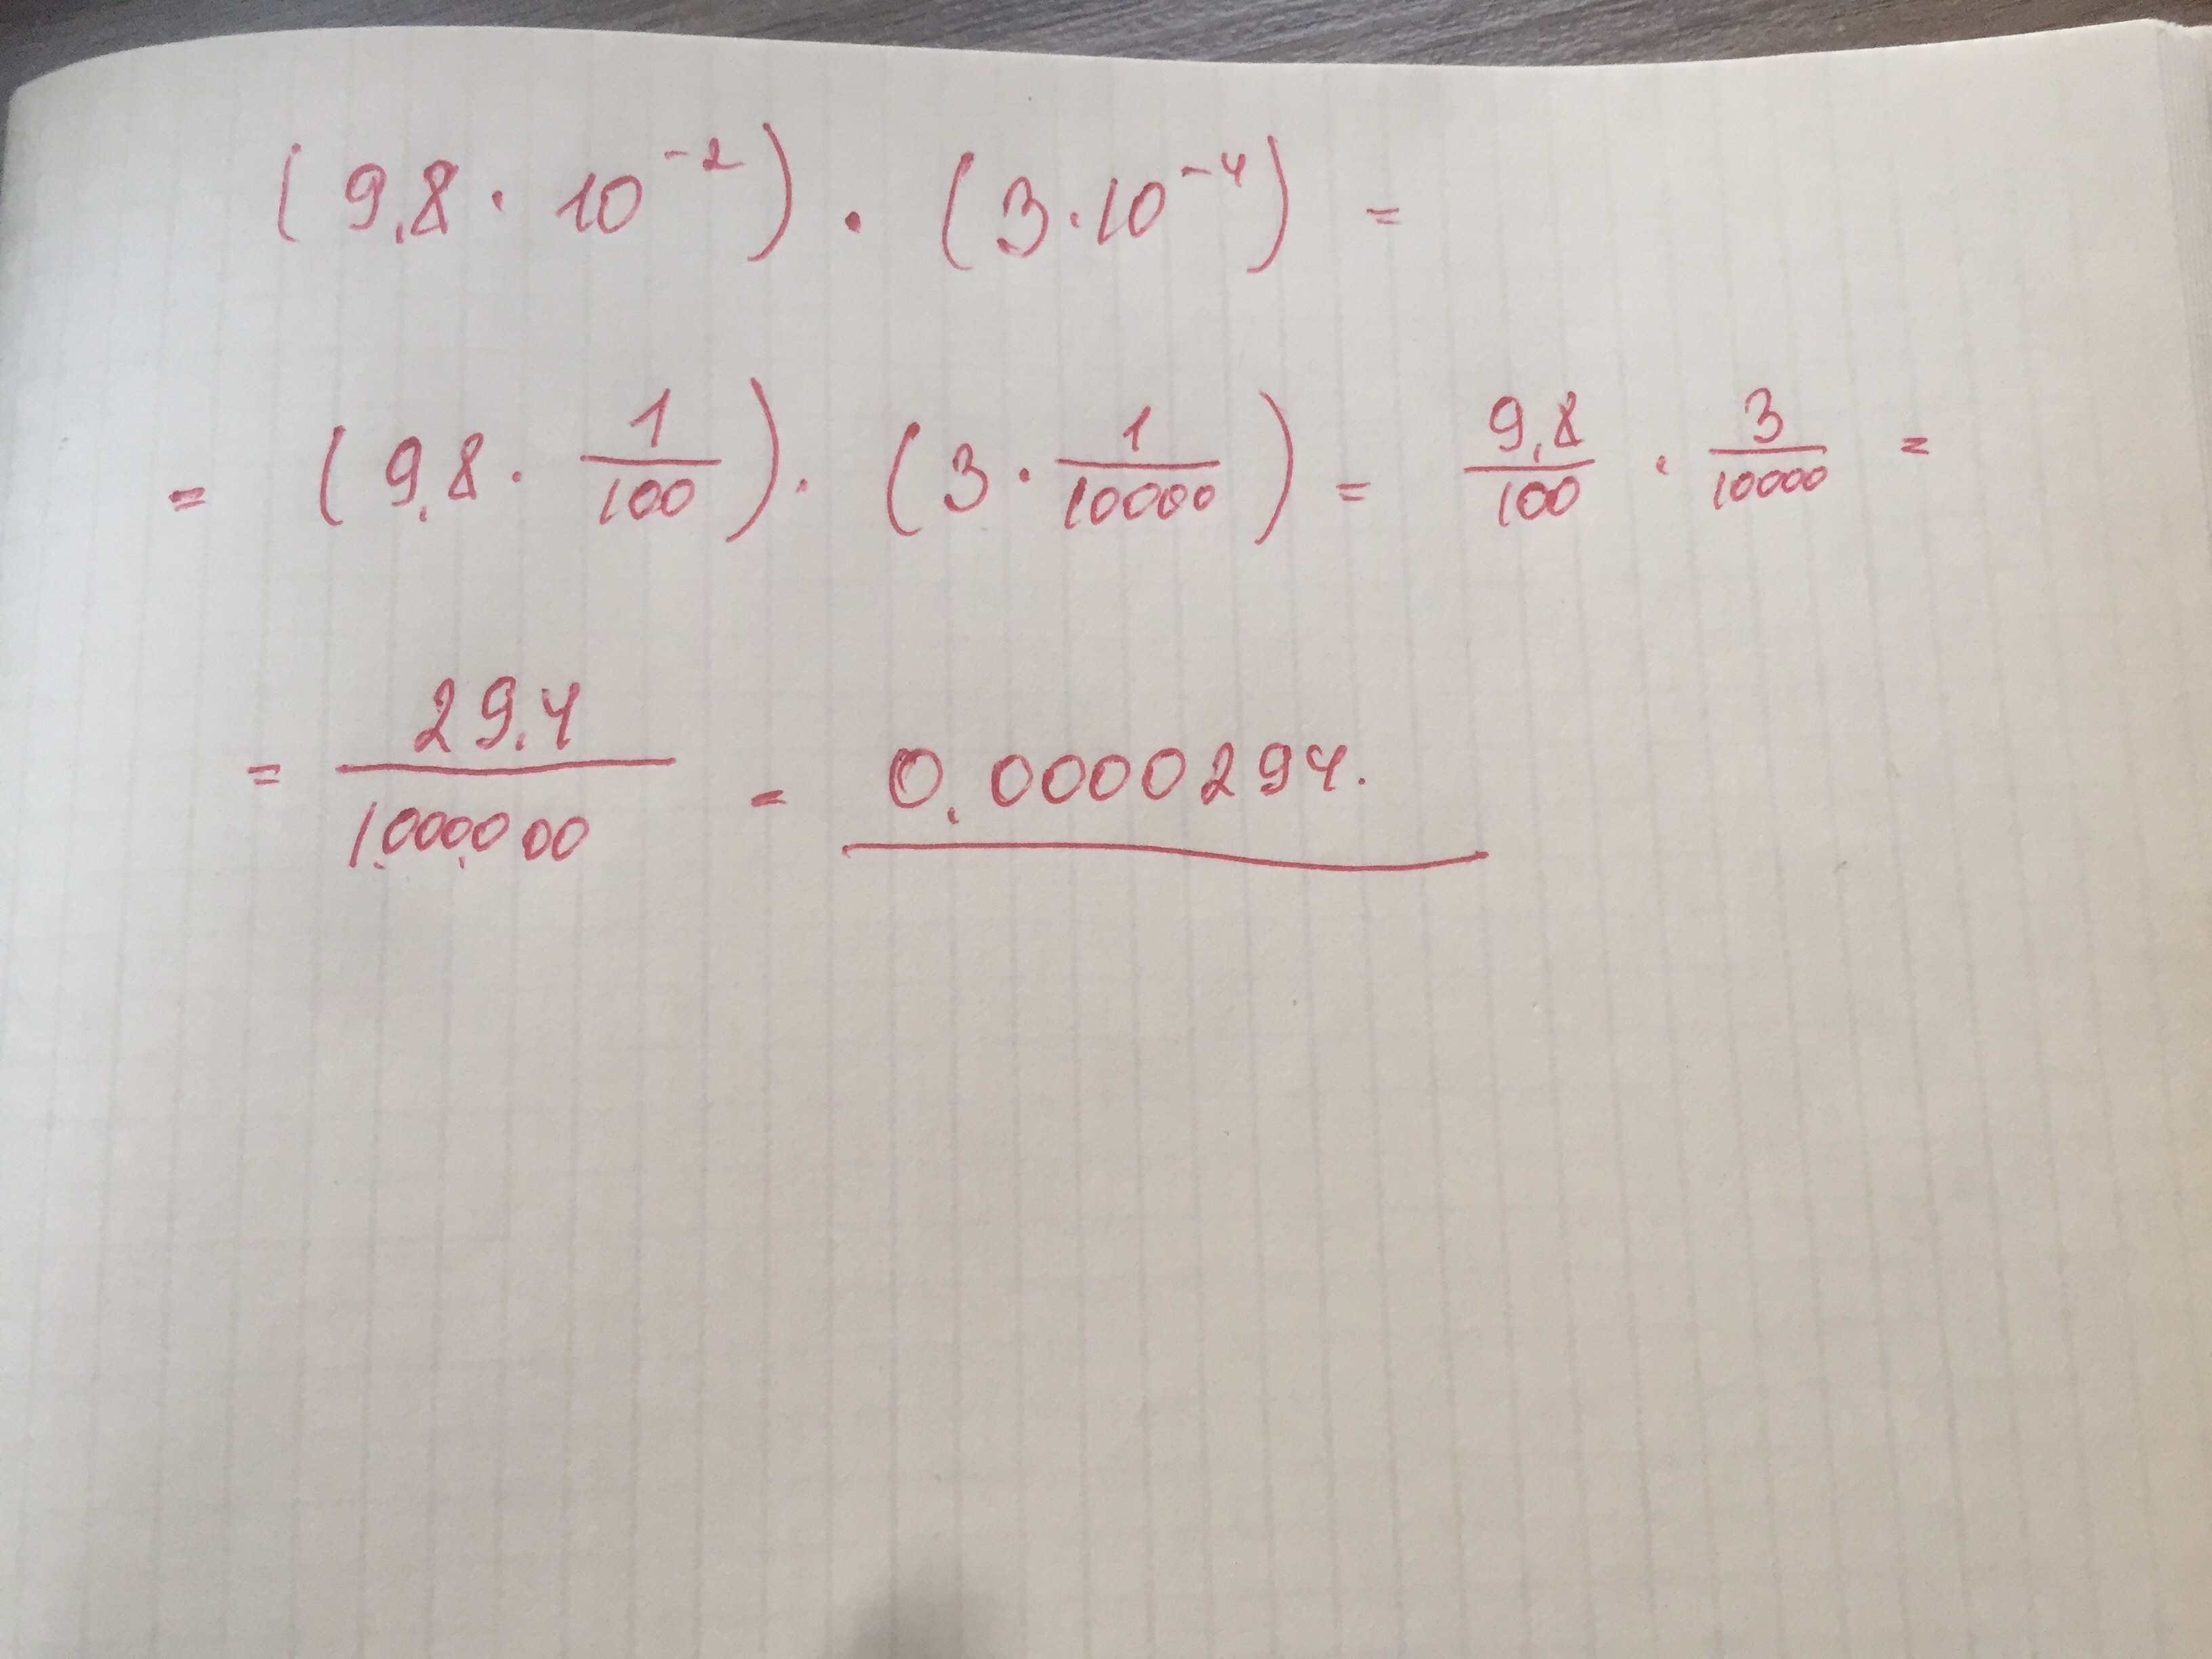 (9.8 · 10⁻²) · (3 · 10⁻⁴) =
= (9.8 · 1/100) · (3 · 1/10000) = 9.8/100 · 3/10000 =
= 29.4/1.000.000 = 0.0000294.